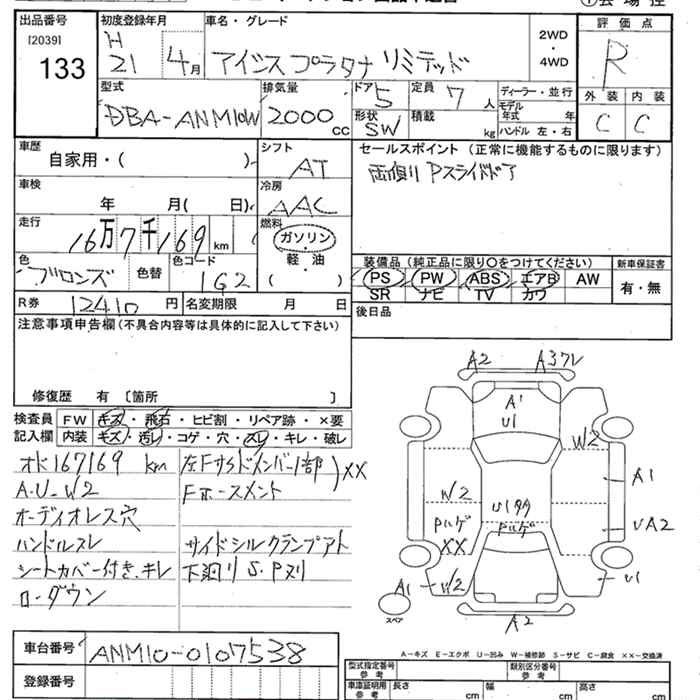 出品番号
[2039]
133
初度登録年月
H
21 4月
車名・グレード
アイシス プラタナ リミテッド
2WD
・
4WD
評価点
R
外装 内装
C C
型式
DBA-ANM10W
排気量
2000cc
ドア 5
形状 SW
定員 7人
積載 kg
ディーラー・並行
モデル
年式 年
ハンドル 左・右
車歴
自家用・( )
シフト
AT
セールスポイント (正常に機能するものに限ります)
両側 Pスライドドア
車検
年 月( 日)
冷房
AAC
走行
16万7千169km
燃料
ガソリン
・
軽・油
( )
色
ブロンズ
色替
色コード
1G2
装備品 (純正品に限り○をつけてください)
新車保証書
PS PW ABS エアB AW
SR ナビ TV カワ
有・無
R券 12410円
名変期限 月 日
後日品
注意事項申告欄 (不具合内容等は具体的に記入して下さい)
修復歴 有 [箇所 ]
検査員
記入欄
FW キズ・飛石・ヒビ割・リペア跡・×要
内装 キズ・汚レ・コゲ・穴・スレ・キレ・破レ
オド167169km
A.U-W2
オーディオレス穴
ハンドルスレ
シートカバー付き.キレ
ローダウン
左Fサイドメンバー1部
Fホースメント
XX
サイドシルクランプアト
下廻り S.P刈
A2 A37レ
A1
U1
W2
A1
W2
Pハゲ
XX
Pハゲ
UA2
A1
W2
U1
A2
スペア
A-キズ E-エクボ U-凹み W-補修跡 S-サビ C-腐食 XX-交換済
車台番号
ANM10-0107538
登録番号
型式指定番号
参考
類別区分番号
参考
車庫証明用
参考
長さ cm
幅 cm
高さ cm